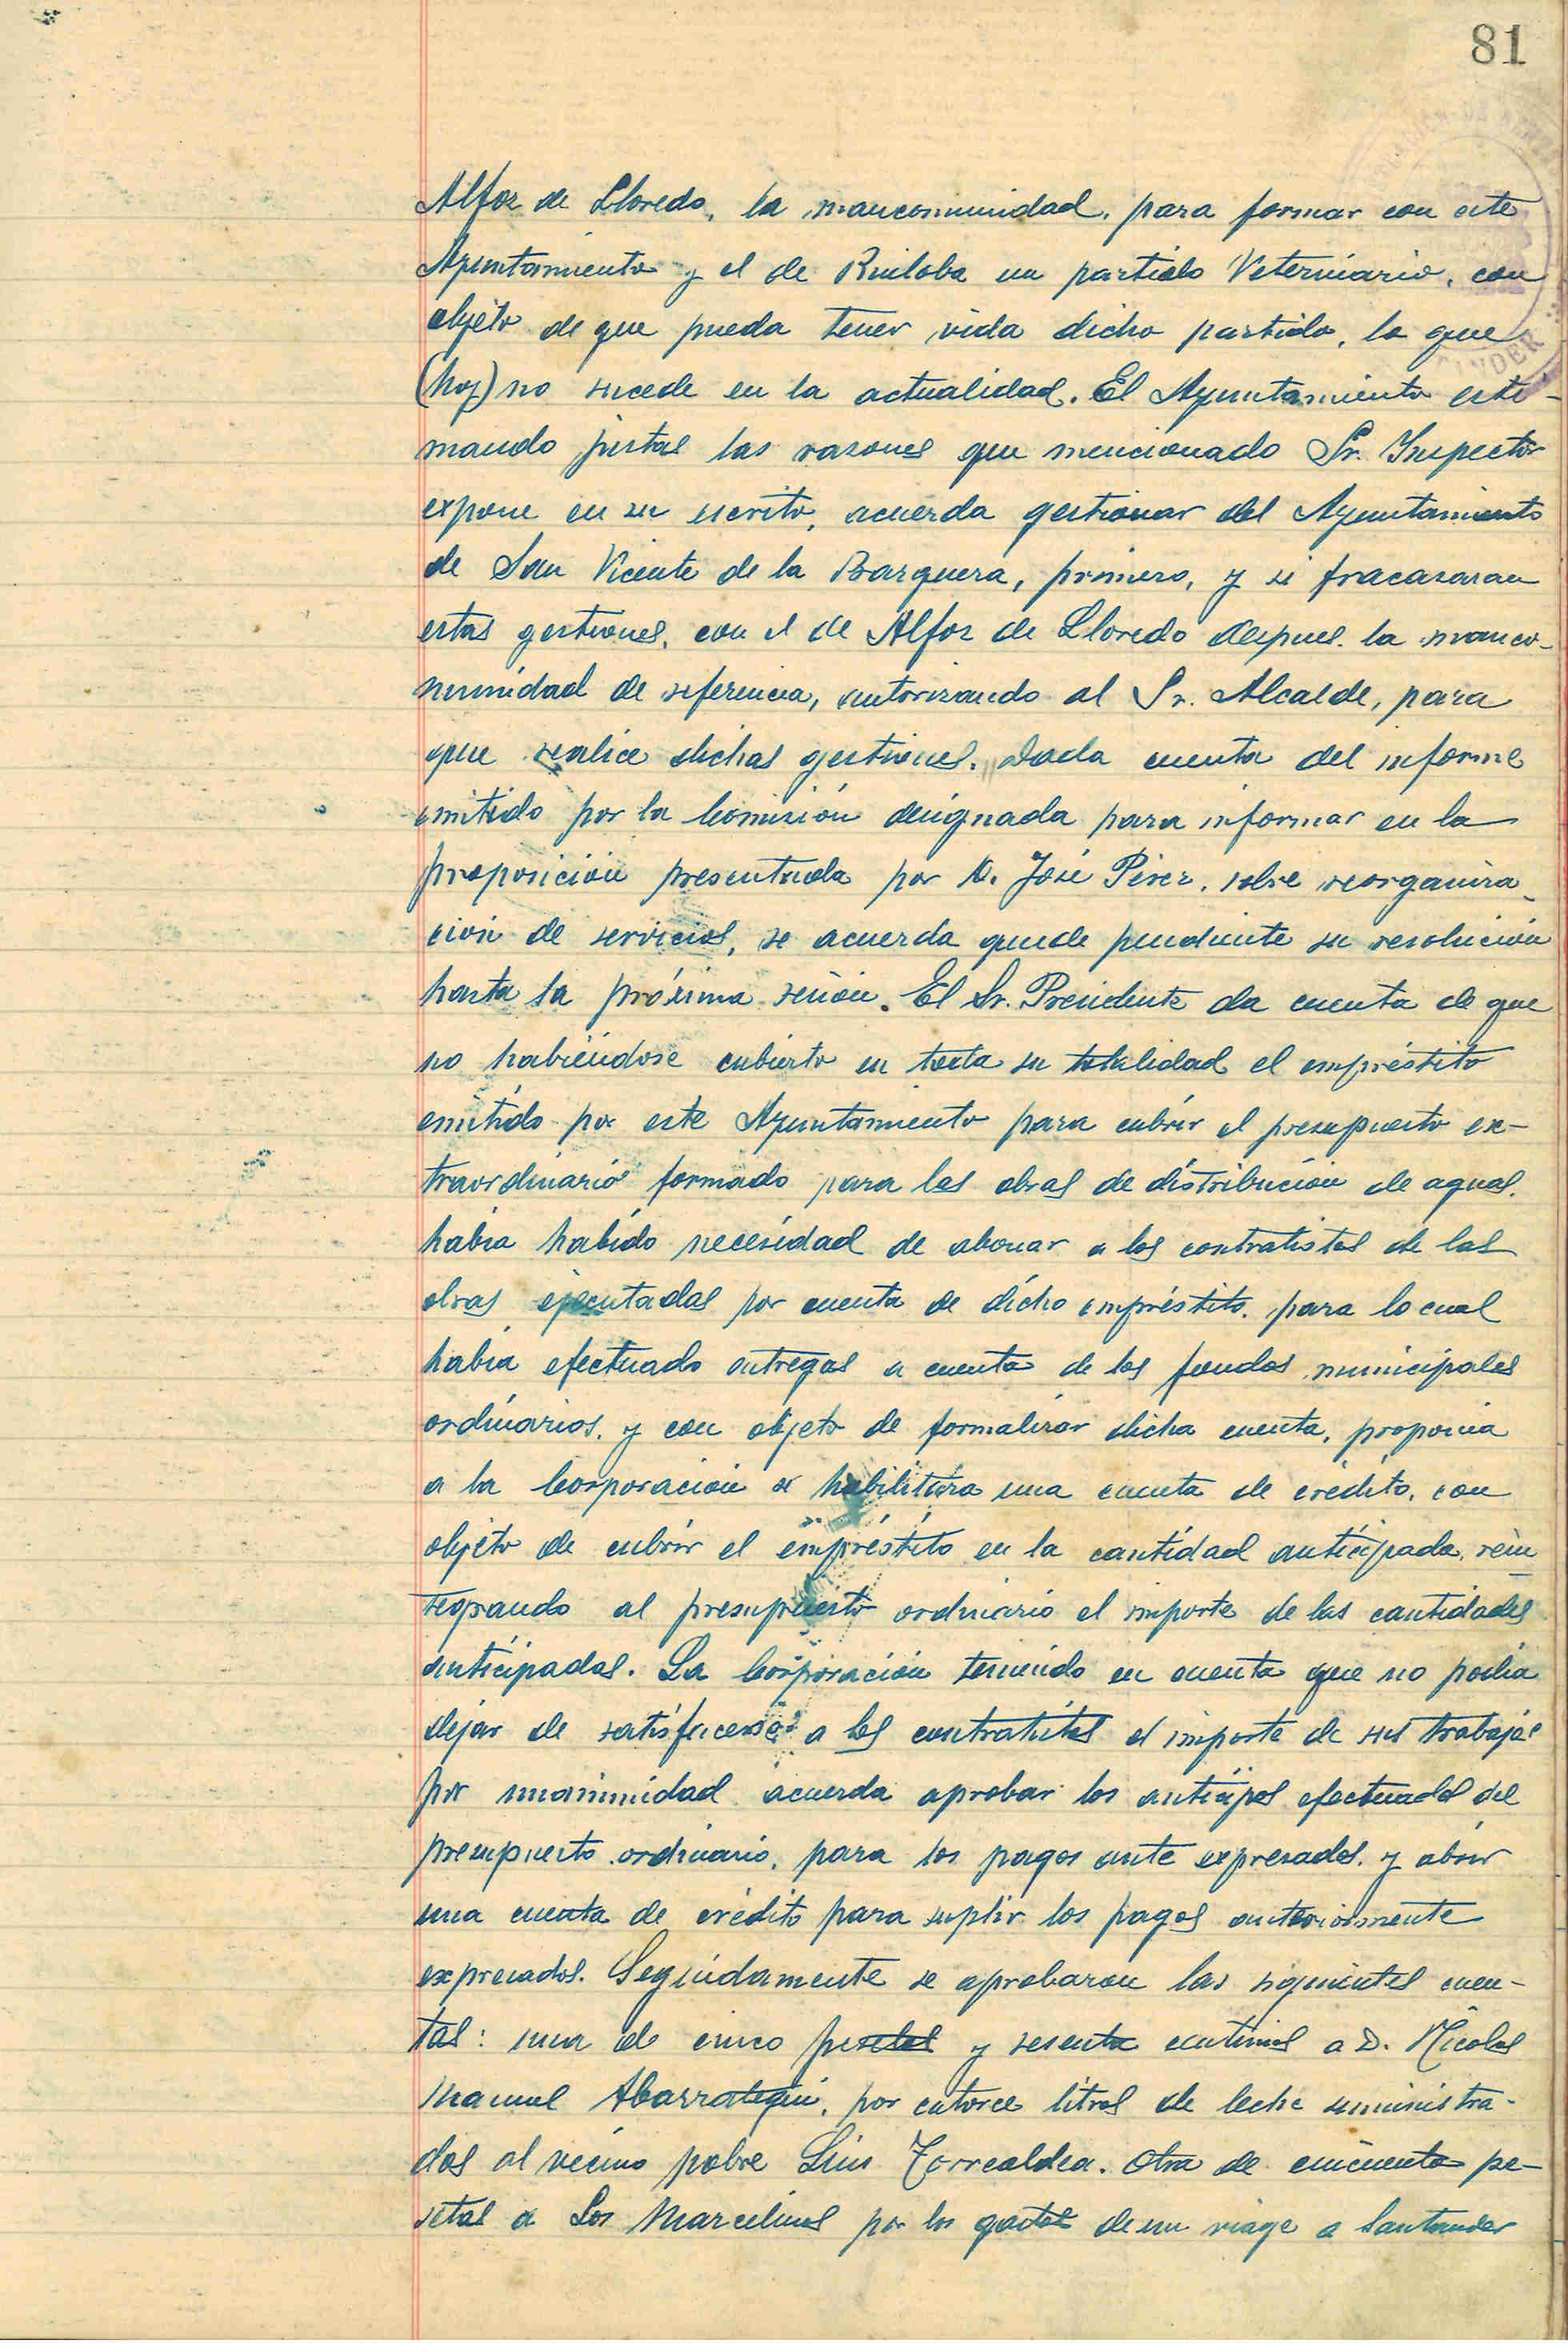 81
Alfoz de Lloredo, la mancomunidad, para formar con este
Ayuntamiento y el de Ruiloba un partido Veterinario, con
objeto de que pueda tener vida dicho partido, lo que
(hoy) no sucede en la actualidad. El Ayuntamiento esti-
mando justas las razones que mencionado Sr. Inspector
expone en su escrito, acuerda gestionar del Ayuntamiento
de San Vicente de la Barquera, primero, y si fracasaran
estas gestiones, con el de Alfoz de Lloredo despues la manco-
munidad de referencia, autorizando al Sr. Alcalde, para
que realice dichas gestiones. Dada cuenta del informe
emitido por la Comisión designada para informar en la
proposición presentada por D. José Pérez, sobre reorganiza-
ción de servicios, se acuerda quede pendiente su resolución
hasta la próxima sesión. El Sr. Presidente da cuenta de que
no habiéndose cubierto en toda su totalidad el empréstito
emitido por este Ayuntamiento para cubrir el presupuesto ex-
traordinario formado para las obras de distribución de aguas,
había habido necesidad de abonar a los contratistas de las
obras ejecutadas por cuenta de dicho empréstito, para lo cual
había efectuado entregas a cuenta de los fondos municipales
ordinarios, y con objeto de formalizar dicha cuenta, proponía
a la Corporación se habilitara una cuenta de crédito, con
objeto de cubrir el empréstito en la cantidad anticipada, rein
tegrando al presupuesto ordinario el importe de las cantidades
anticipadas. La Corporación teniendo en cuenta que no podía
dejar de satisfacerse a los contratistas el importe de sus trabajos
por unanimidad acuerda aprobar los anticipos efectuados del
presupuesto ordinario, para los pagos ante expresados, y abrir
una cuenta de crédito para suplir los pagos anteriormente
expresados. Seguidamente se aprobaron las siguientes cuen-
tas: una de cinco pesetas y sesenta centimos a D. Nicolas
Manuel Abarrategui, por catorce litros de leche suministra-
dos al vecino pobre Luis Torrealdea. Otra de cincuenta pe-
setas a Los Marcelinos por los gastos de un viage a Santander